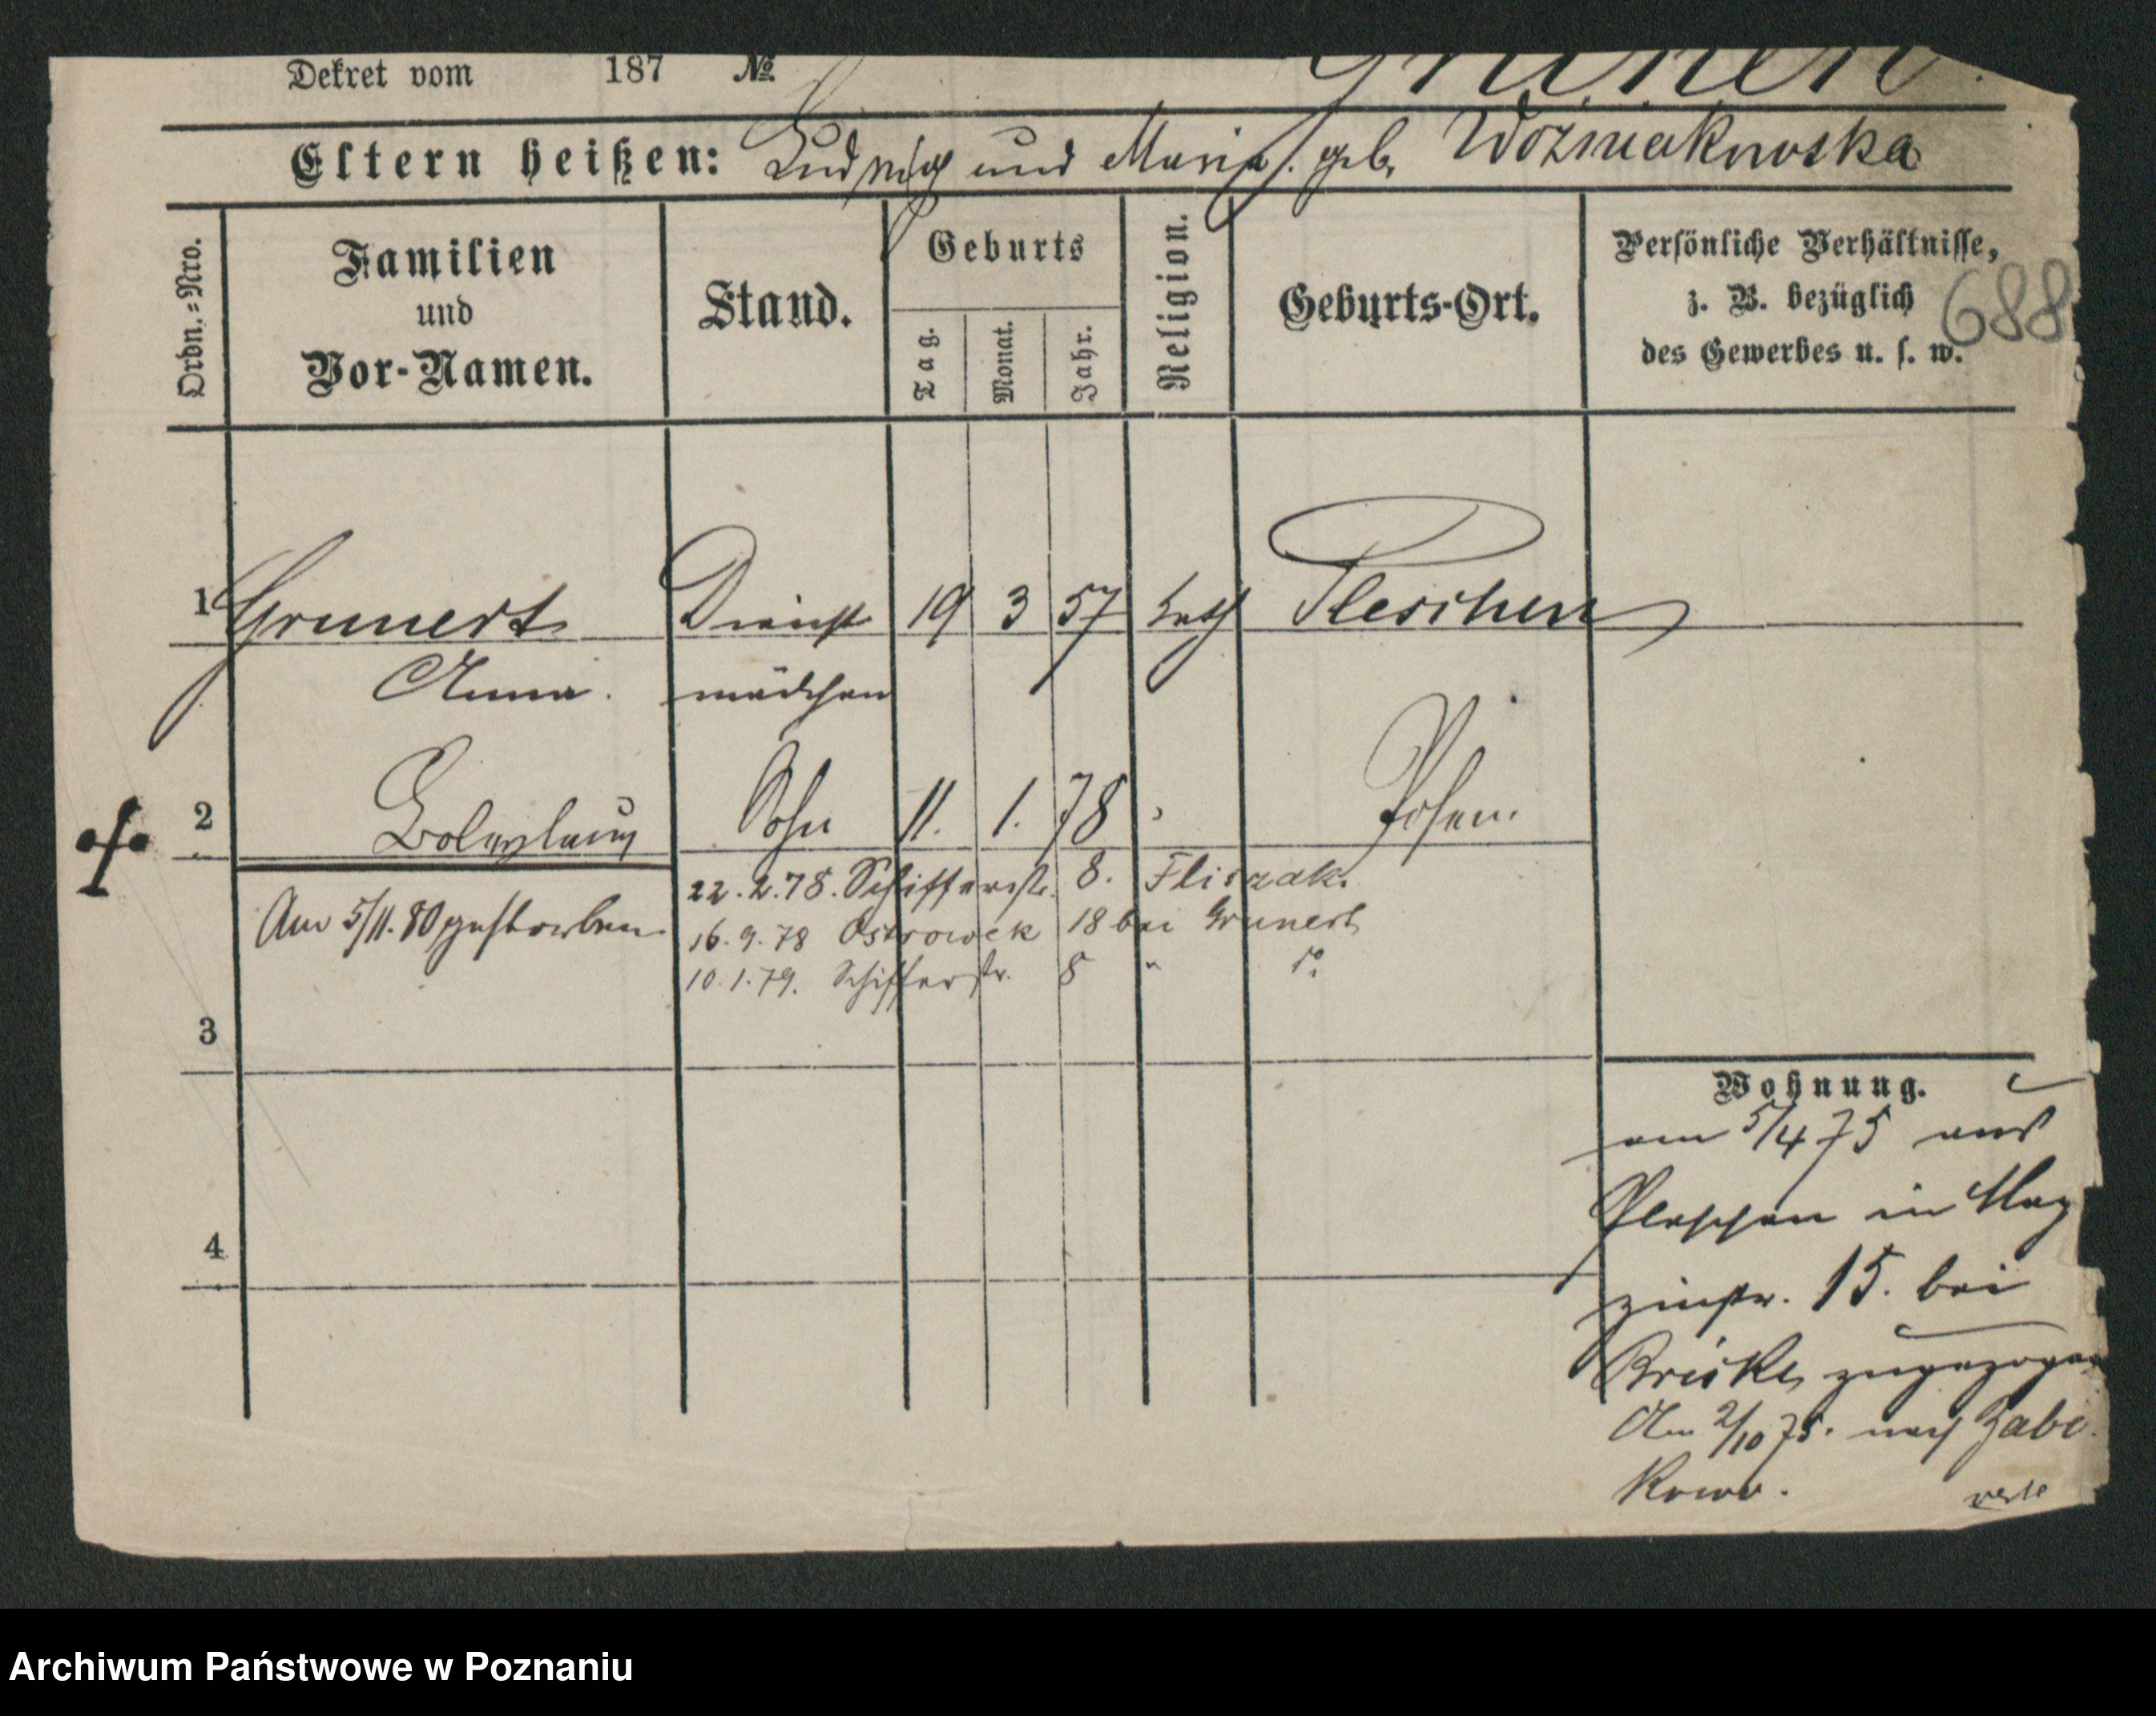 Dekret vom 187 No.
Grunert.
Eltern heißen: Ludwig und Maria geb. Wozniakowska
Ordn.-Nro.
Familien
und
Vor-Namen.
Stand.
Geburts
Tag.
Monat.
Jahr.
Religion.
Geburts-Ort.
Persönliche Verhältnisse,
z. B. bezüglich
des Gewerbes u. s. w.
688
1 Grunert Dienst 19 3 57 kath Pleschen
Anna. mädchen
2 Boleslaus Sohn 11. 1. 78 " Posen.
22.2.78. Schifferstr. 8. Fliszak.
Am 5/11.80 gestorben
16.9.78 Ostrowek 18 bei Grunert
10.1.79. Schifferstr. 8 " do
3
4
Wohnung.
am 5/4 75 aus
Pleschen in Mag
zinstr. 15. bei
zugezogen
Am 2/10 75. nach Zabi
kowo.